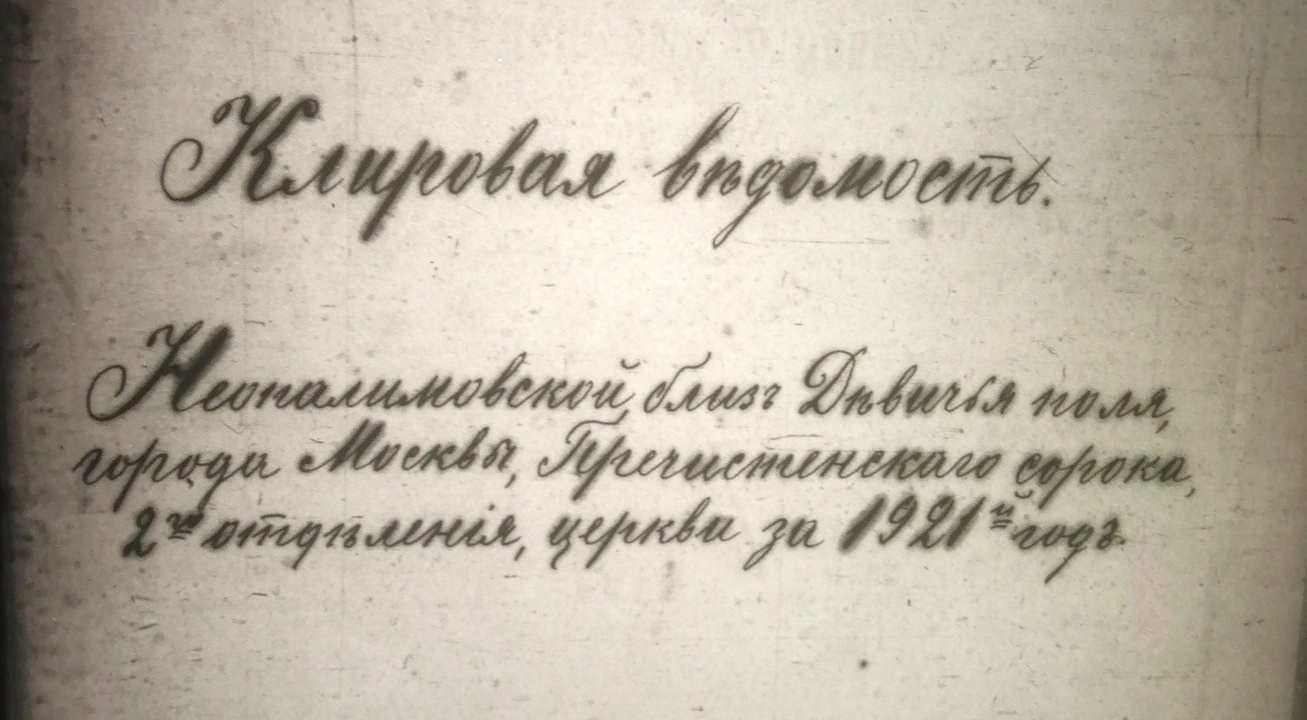 Клировая вѣдомость.
Неопалимовской, близъ Дѣвичья поля,
города Москвы, Пречистенскаго сорока,
2го отдѣленія, церкви за 1921й годъ.